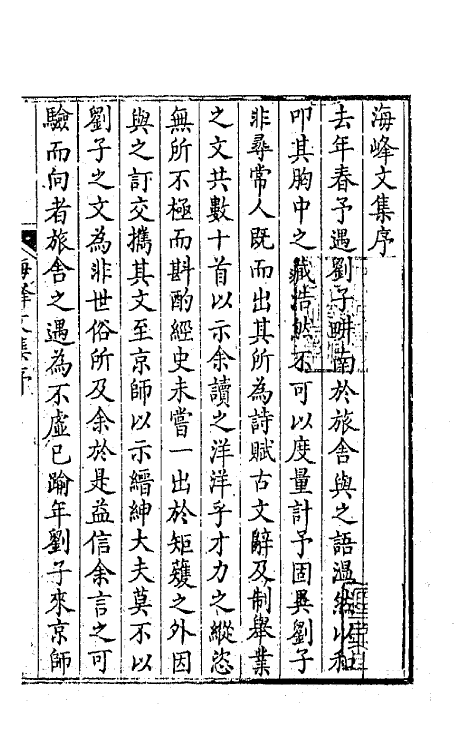 海峰文集序
去年春予遇劉子畊南於旅舍與之語溫然以和
叩其胸中之藏浩然不可以度量計予固異劉子
非尋常人既而出其所為詩賦古文辭及制舉業
之文共數十首以示余讀之洋洋乎才力之縱恣
無所不極而斟酌經史未嘗一出於矩矱之外因
與之訂交攜其文至京師以示縉紳大夫莫不以
劉子之文為非世俗所及余於是益信余言之可
驗而向者旅舍之遇為不虛已踰年劉子來京師
海峰文集序